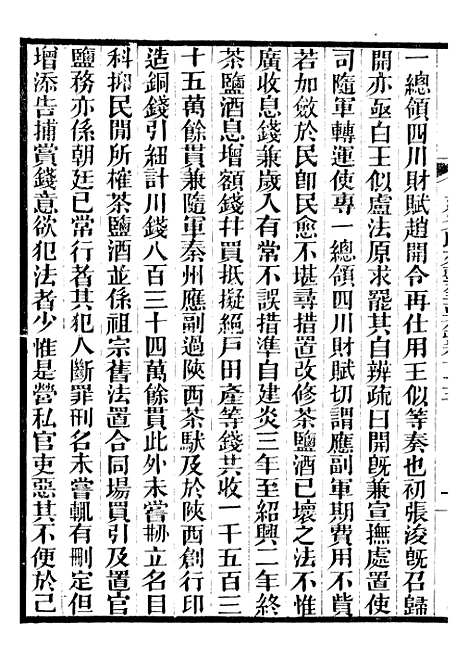 一總領四川財賦趙開令再仕用王似等奏也初張浚旣召歸
開亦亟白王似盧法原求罷其自辨疏曰開旣兼宣撫處置使
司隨軍轉運使專一總領四川財賦切謂應副軍期費用不貲
若如斂於民卽民愈不堪尋措置改修茶鹽酒已壞之法不惟
廣收息錢兼歲入有常不尋措準自建炎三年至紹興二年終
茶鹽酒息增額錢幷買抵擬絕戸田產等錢共收一千五百三
十五萬餘貫兼隨軍秦州應副過陝西茶馱及於陝西創行印
造銅錢引紐計川錢八百三十四萬餘貫此外未嘗刱立名目
科抑民開所榷茶鹽酒並係祖宗舊法置合同場買引及置官
鹽務亦係朝廷已常行者其犯人斷罪刑名未嘗輒有刪定但
增添告捕賞錢意欲犯法者少惟是營私官吏惡其不便於己